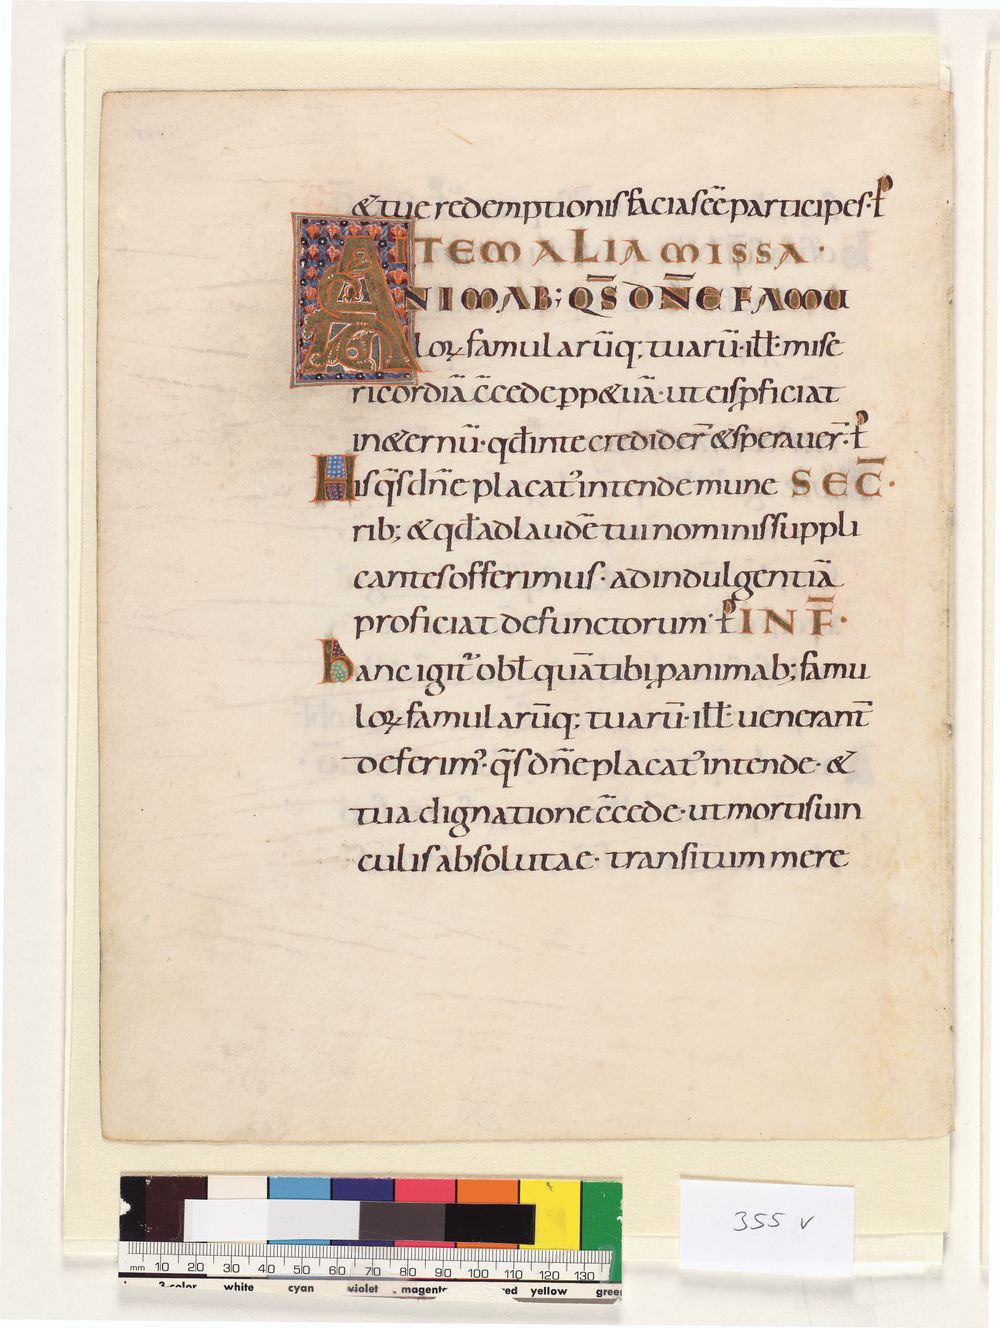 & tue redemptionis facias eē participes· ꝑ
ITEM ALIA MISSA·
ANIMAB; QS̄ DÑE FAMU
loꝝ famularūq; tuarū·ill̄·mise
ricordiā c̄cede ꝑp&uā· ut eis ꝓficiat
in &ernū· qđ in te credider̄ & sperauer̄·
His q̄s dñe placat᾿ intende mune SEC̄·
rib; & qđ ad laudē tui nominis suppli
cantes offerimus· ad indulgentiā
proficiat defunctorum· INF̄·
hanc igit᾿ obł quā tibi ꝑ animab; famu
loꝝ famularūq; tuarū·ill̄ uenerant̄
deferim᾿· q̄s dñe placat᾿ intende· &
tua dignatione c̄cede· ut mortis uin
culis absolutae· transitum mere
355 v
mm 10 20 30 40 50 60 70 80 90 100 110 120 130
3-color white cyan violet magenta red yellow green